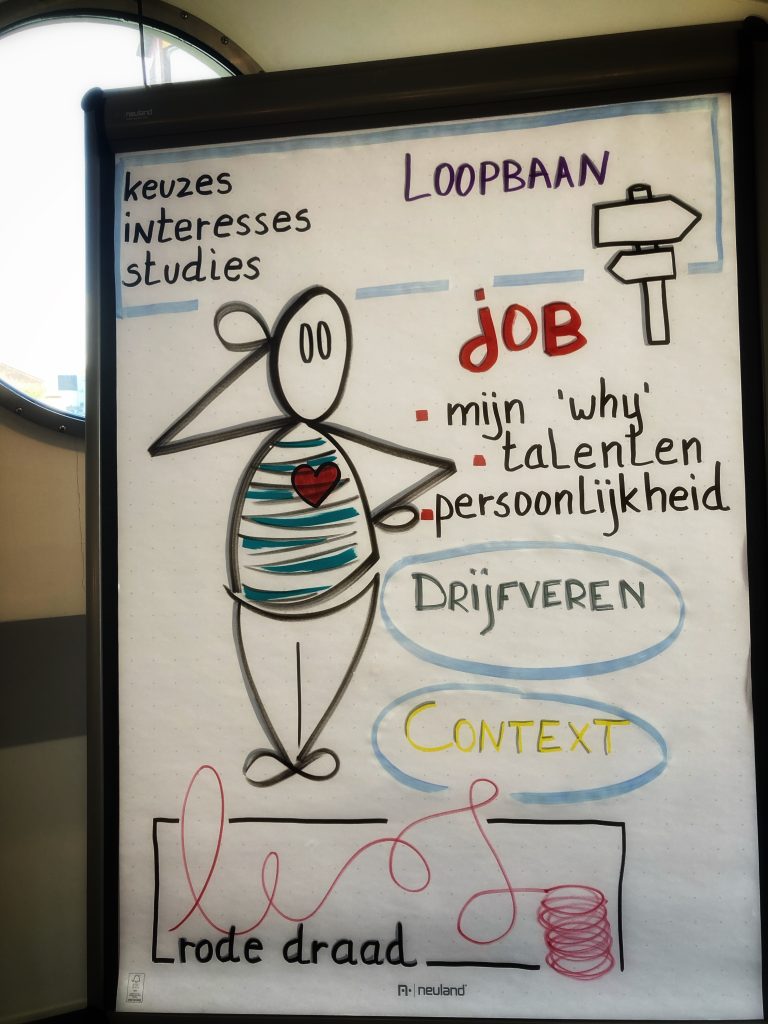 neuland
keuzes
interesses
studies
LOOPBAAN
jOB
mijn 'why'
talenten
persoonlijkheid
DRIJFVEREN
CONTEXT
rode draad
neuland